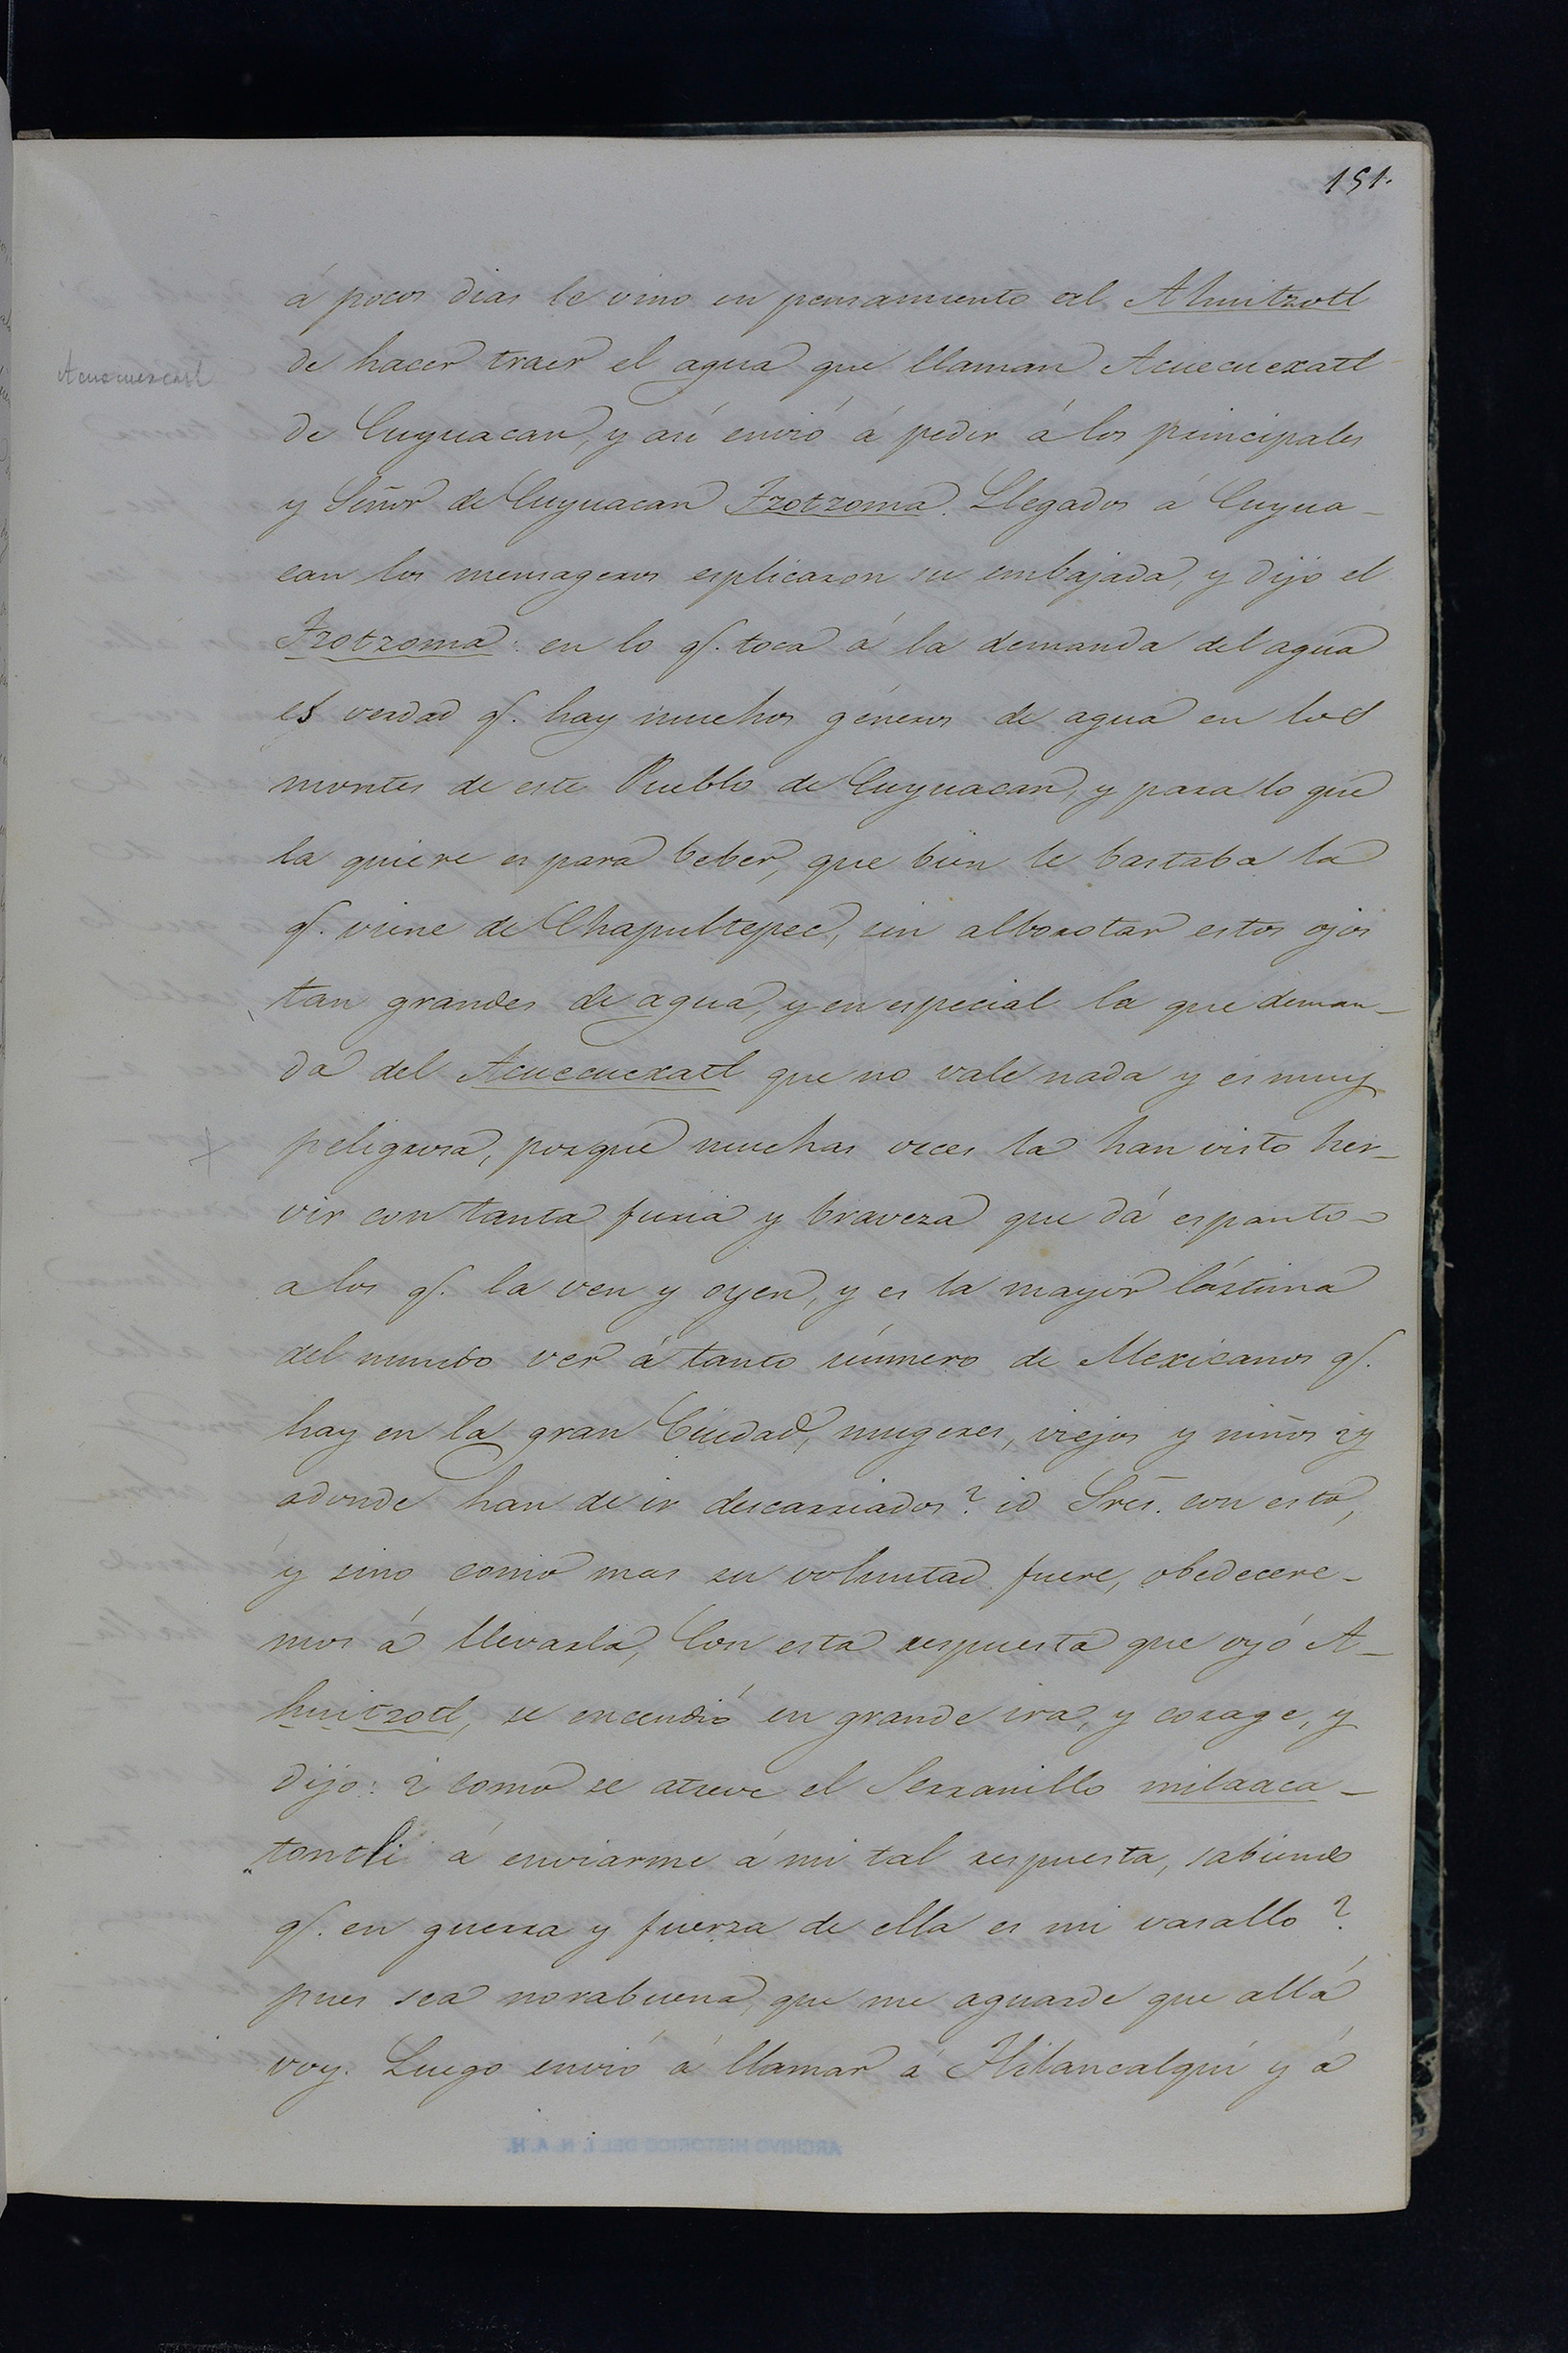 151.
á pocos dias le vino en pensamiento al Ahuitzotl
de hacer traer el agua que llaman Acuecuexatl
de Cuyuacan, y asi envió á pedir á los principales
y Señor de Cuyuacan Tzotzoma. Llegados á Cuyua-
can los mensageros esplicaron su embajada, y dijo el
Tzotzoma: en lo q. toca á la demanda del agua
es verdad q. hay muchos géneros de agua en los
montes de este Pueblo de Cuyuacan, y para lo que
la quiere es para beber, que bien le bastaba la
q. viene de Chapultepec, sin alborotar estos ojos
tan grandes de agua, y en especial la que deman-
da del Acuecuexatl que no vale nada y es muy
peligrosa, porque muchas veces la han visto her-
vir con tanta furia y braveza que dá espanto
a los q. la ven y oyen, y es la mayor lástima
del mundo ver á tanto número de Mexicanos q.
hay en la gran Ciudad, mugeres, viejos y niños ¿y
adonde han de ir descarriados? id Sres. con esto,
y sino como mas su voluntad fuere, obedecere-
mos á llevarla, Con esta respuesta que oyó A-
huitzotl, se encendió en grande ira, y corage, y
dijo: ¿como se atreve el Serranillo milaaca-
tontli á enviarme á mi tal respuesta, sabiendo
q. en guerra y fuerza de ella es mi vasallo?
pues sea norabuena, que me aguarde que allá
voy. Luego envió á llamar á Tlilancalqui y á
ARCHIVO HISTORICO DEL I. N. A. H.